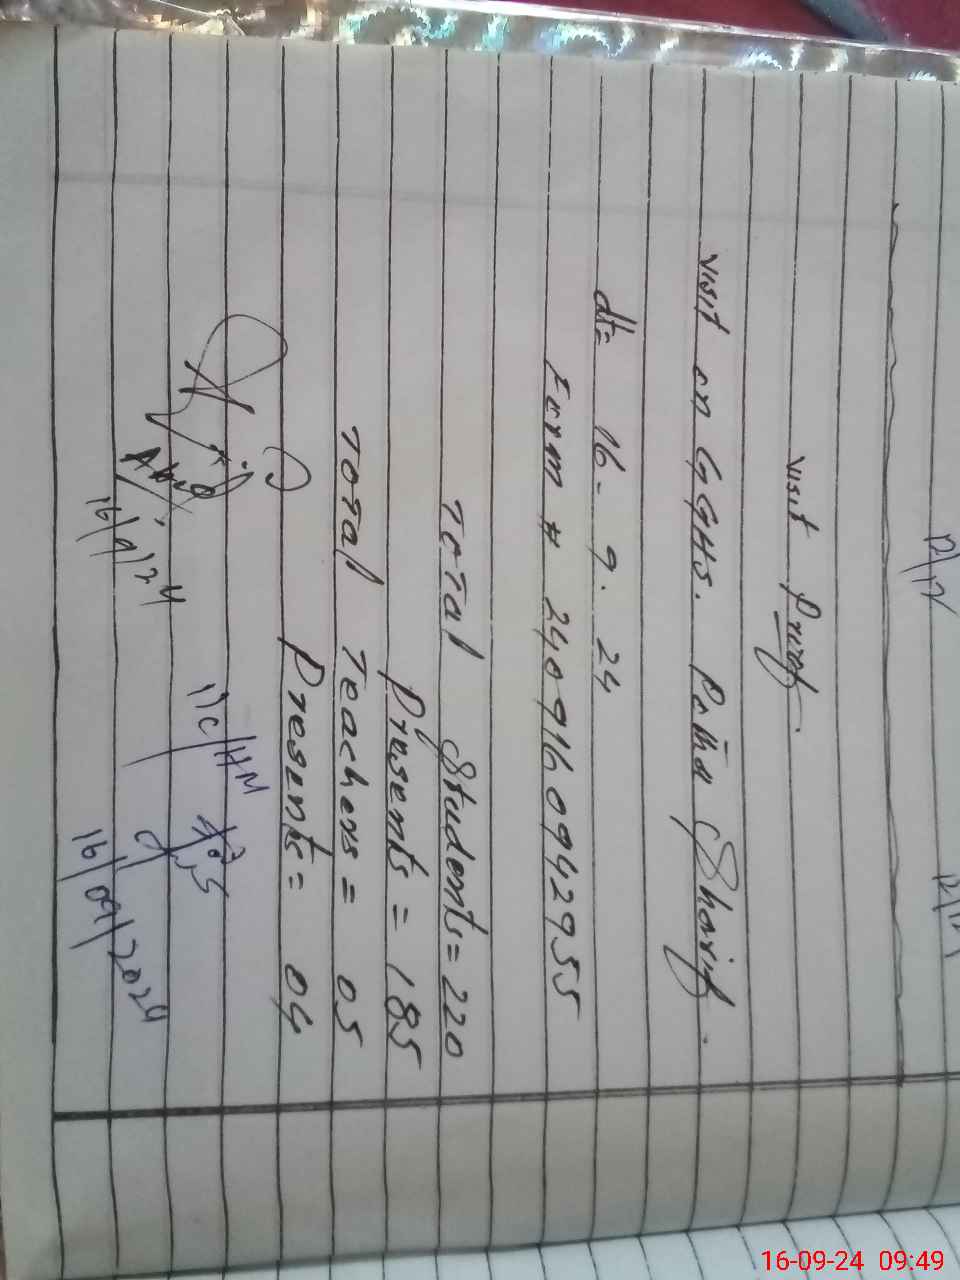 visit Proof.
visit on GGHS. Rama Sharif.
dt= 16-9.24
Form # 2409160942955
Total Students=220
Prusents = 185
Total Teachers = 05
Presents= 04
I/C/HM
16/9/24
16/09/2024
16-09-24 09:49